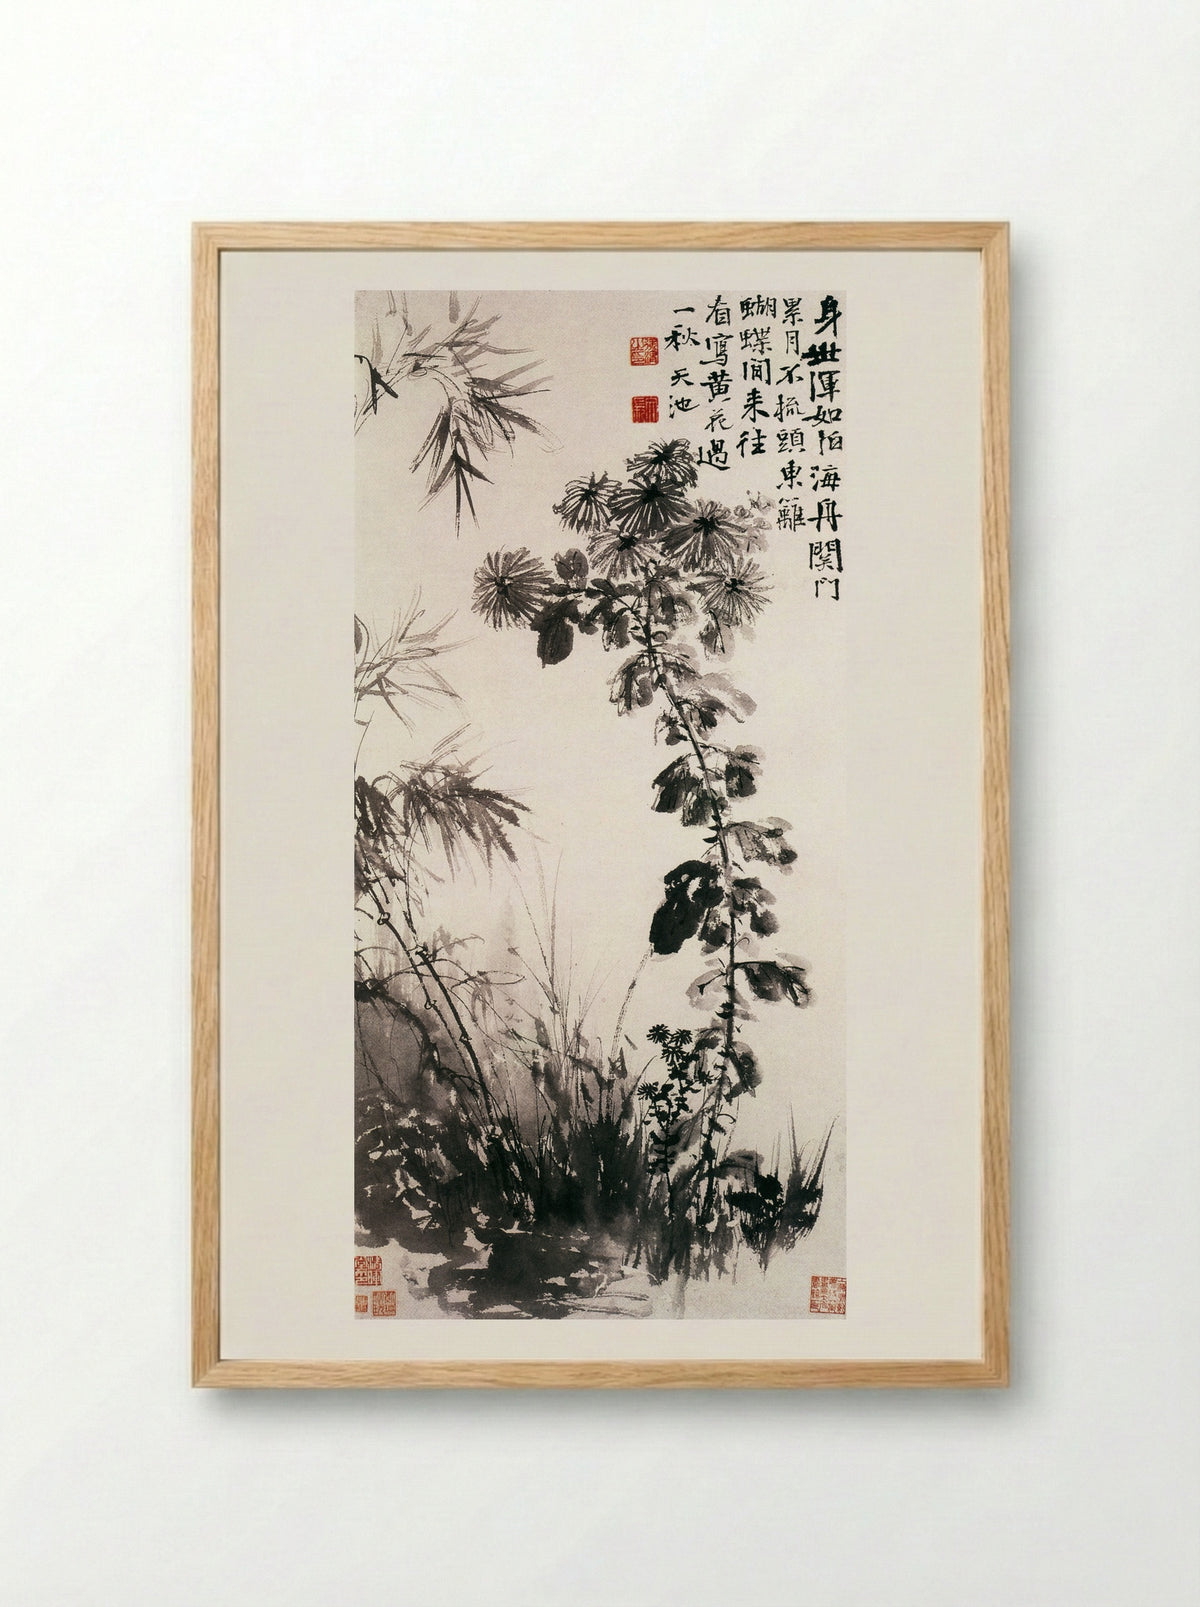 身世渾如泊海舟關門
累月不梳頭東籬
蝴蝶閒来往
看寫黃花過
一秋 天池